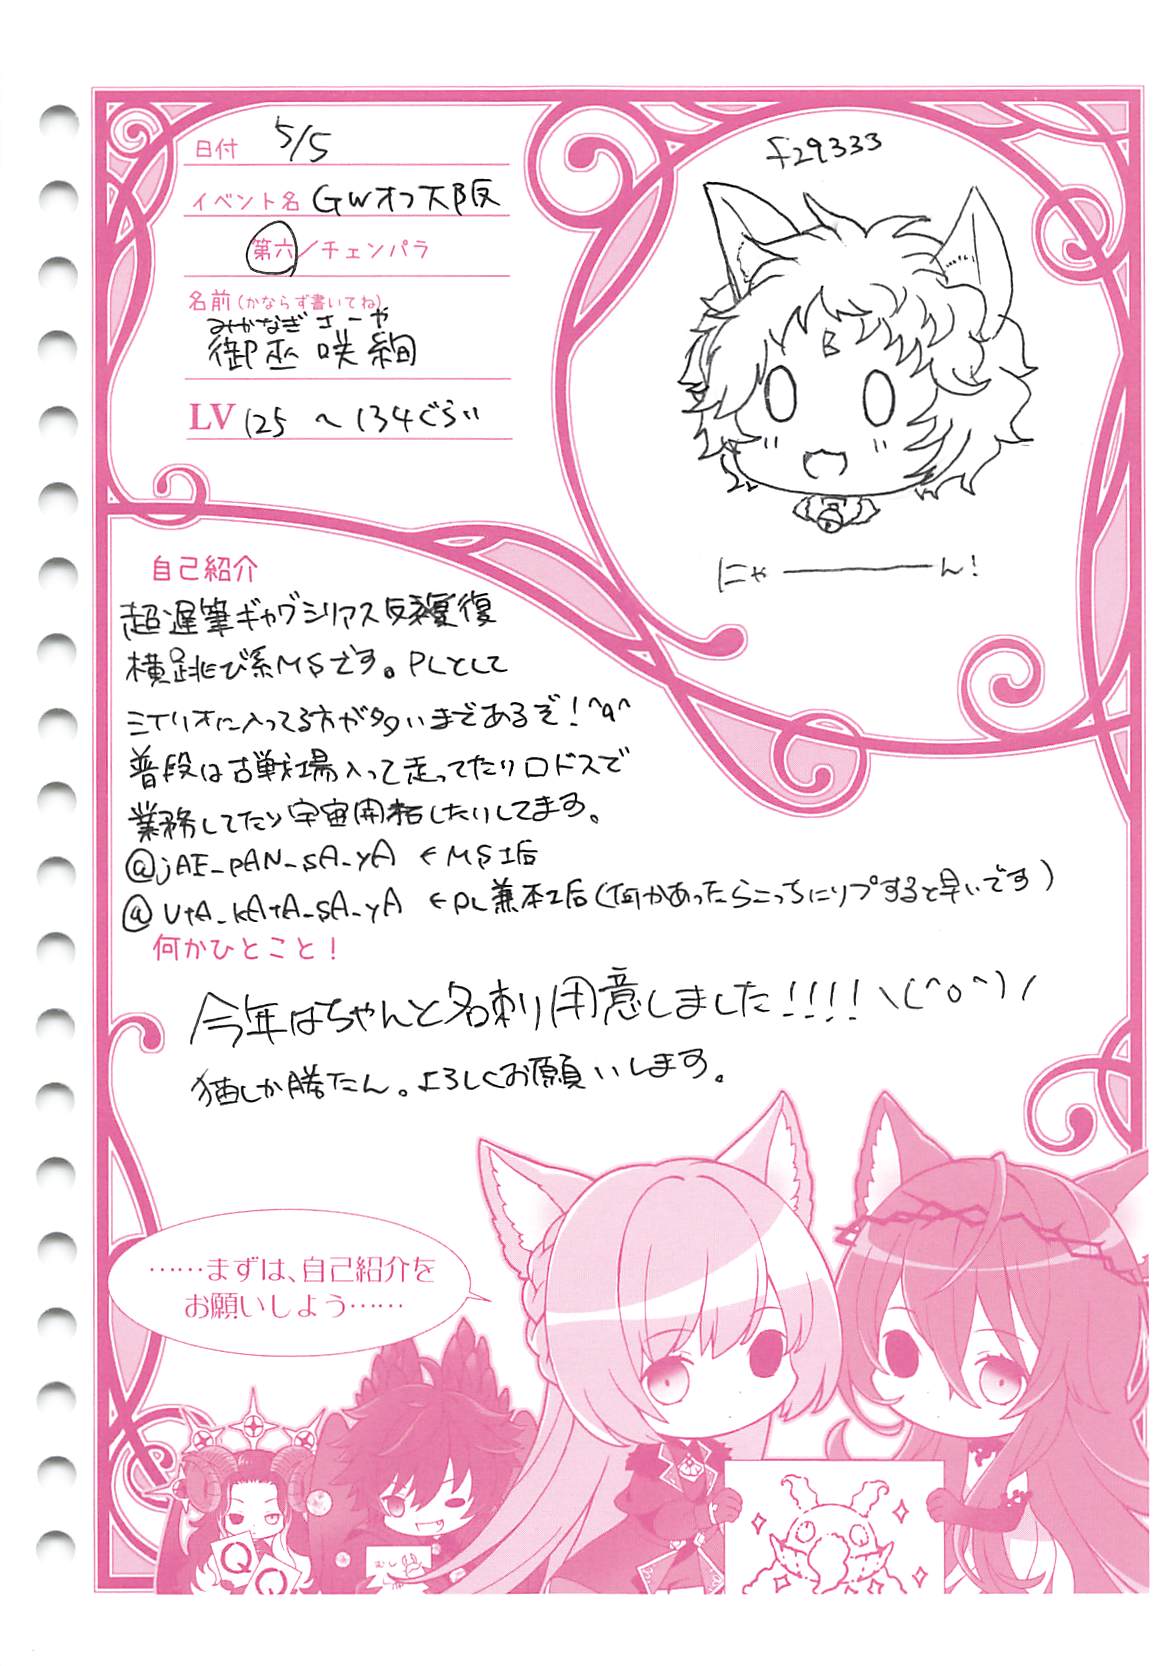 日付 5/5
イベント名 GWオフ大阪
第六/チェンパラ
名前(かならず書いてね)
みかなぎ さーや
御巫 咲絢
LV 125 〜 134ぐらい
f29333
にゃーーーん!
自己紹介
超遅筆ギャグシリアス反復
横跳び系MSです。PLとして
ミイリオに入ってる方が多いまであるぞ!^q^
普段は古戦場入って走ってたりロドスで
業務してたり宇宙開拓したりしてます。
@jAE_pAN_sA_yA ←MS垢
@UtA_kAtA_sA_yA ←PL兼本垢(何かあったらこっちにリプすると早いです)
何かひとこと!
今年はちゃんと名刺用意しました!!!!\(^o^)/
猫しか勝たん。よろしくお願いします。
……まずは、自己紹介を
お願いしよう……
Q
Q